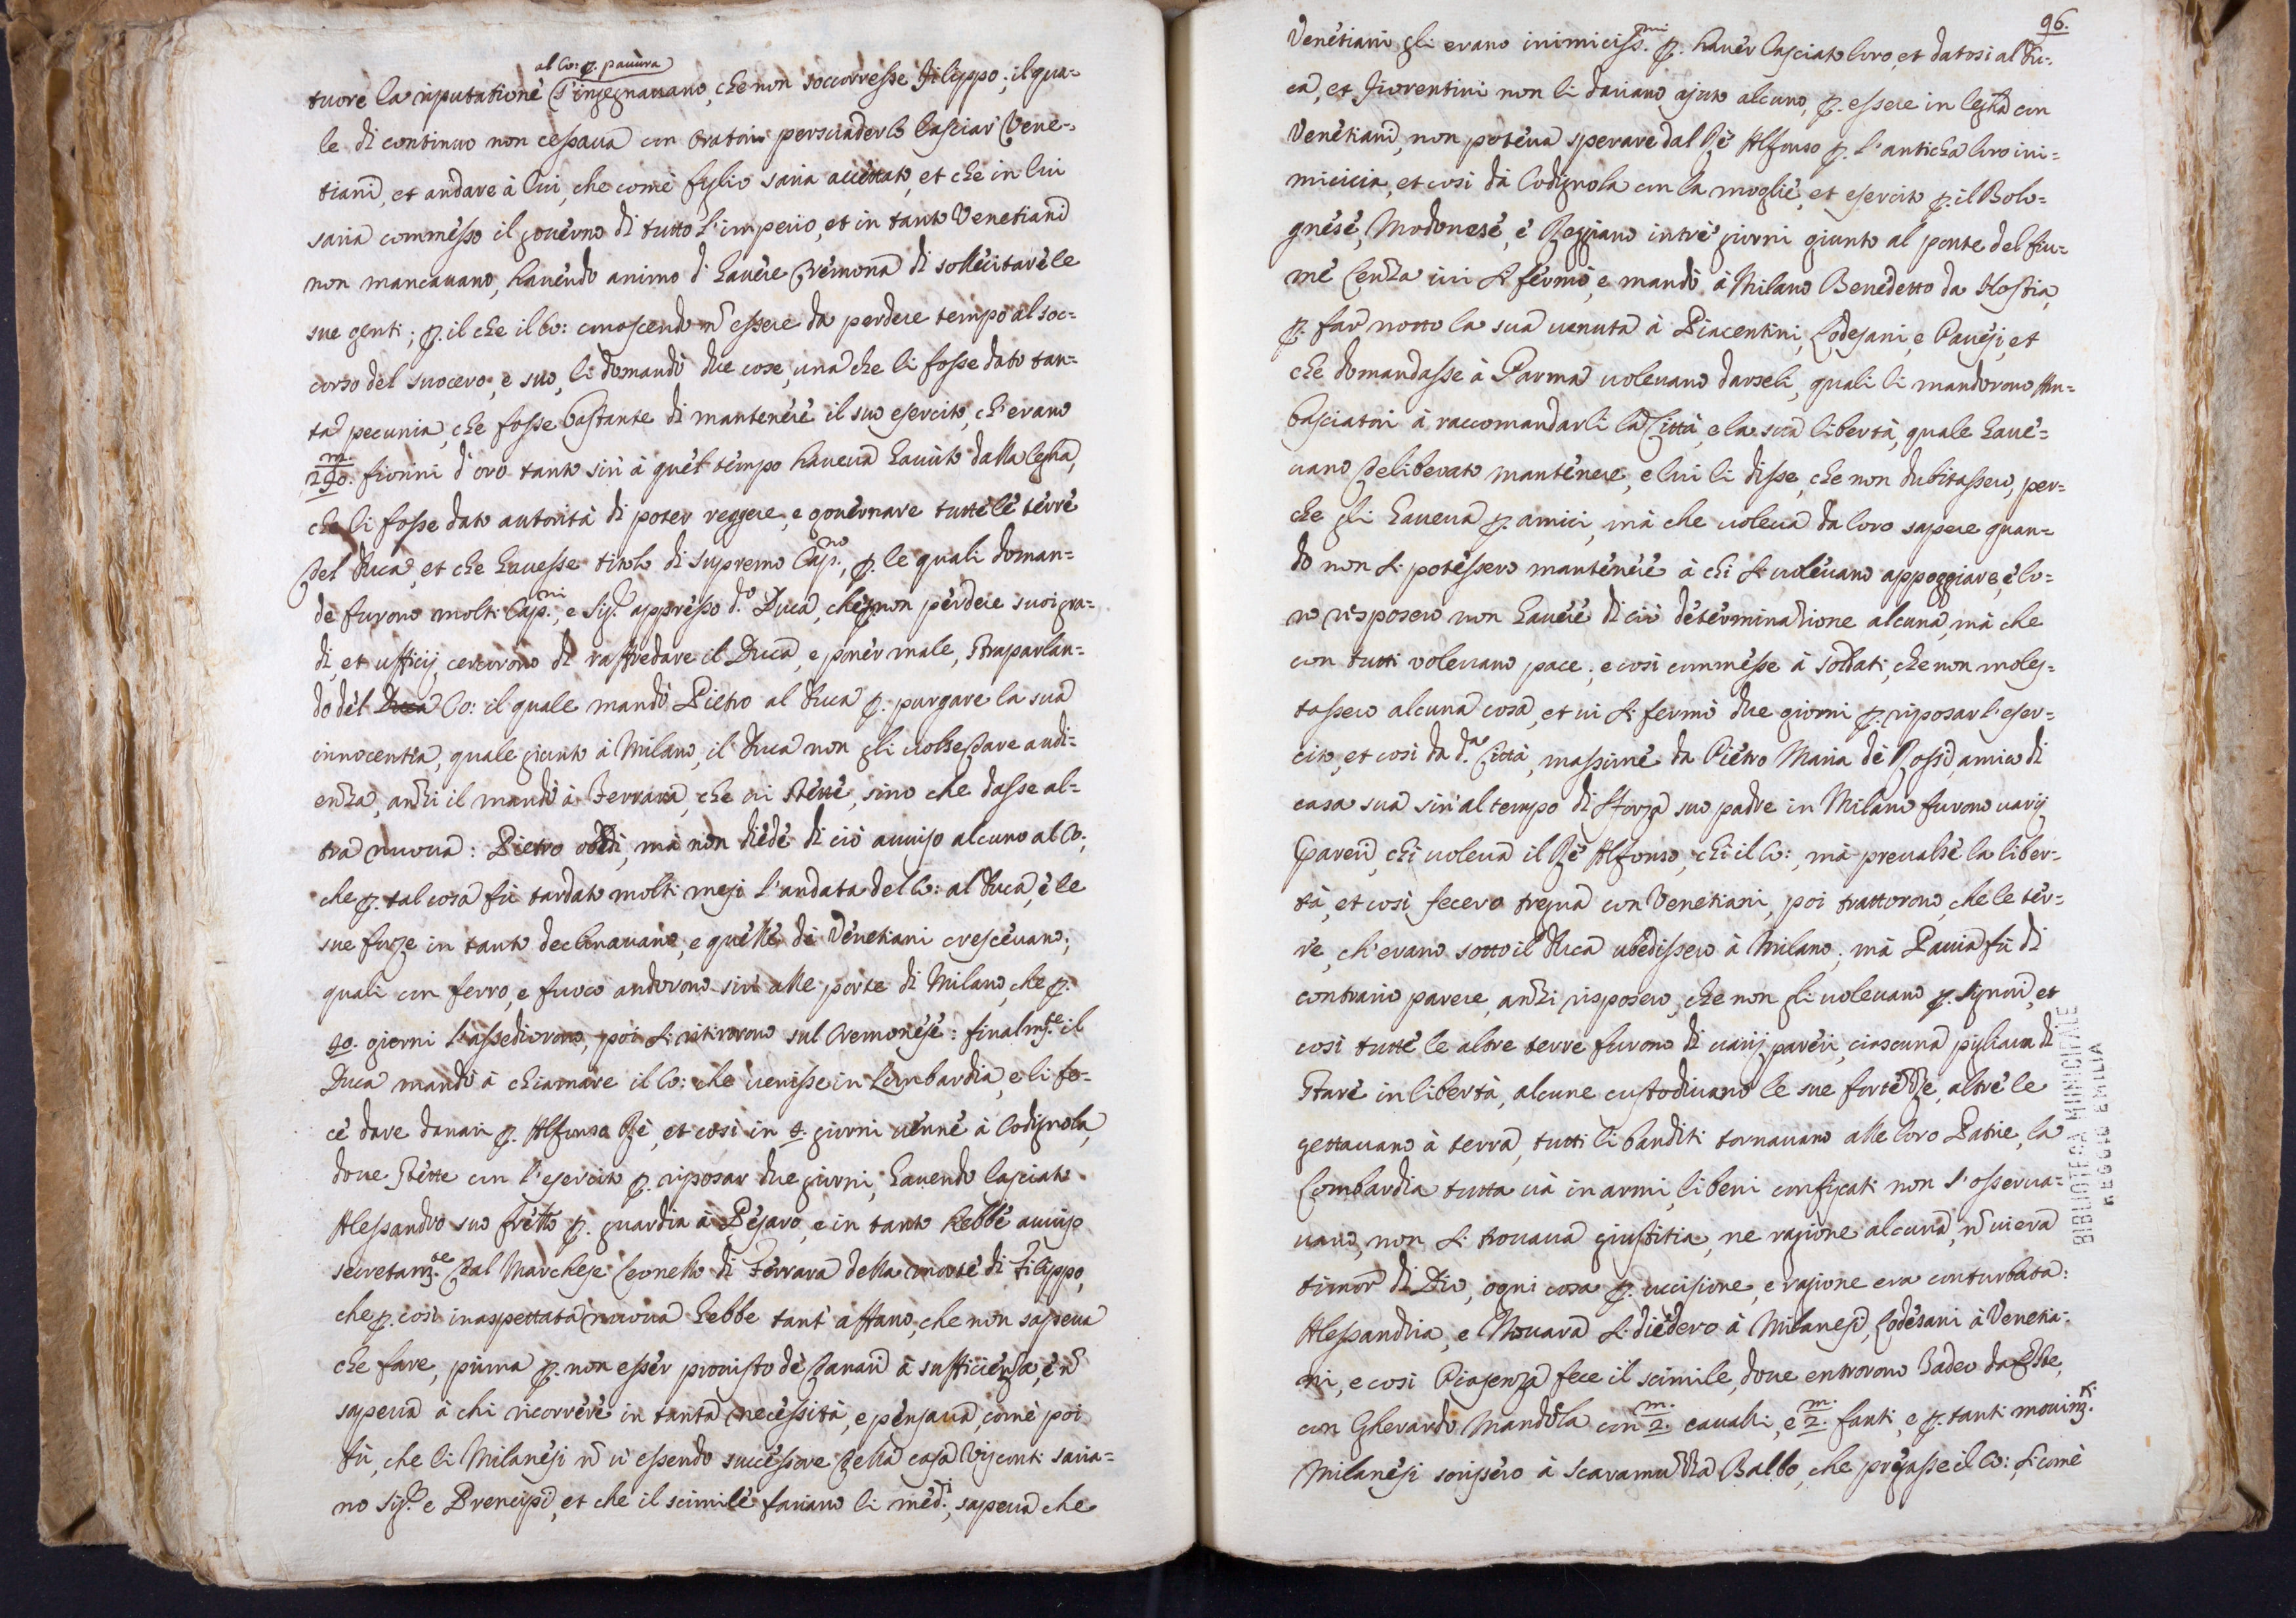 al Co: p. pauura
tuore la riputatione s'ingegnauano, che non soccorresse Filippo; il qua=
le di continuo non cessaua con Oratori persuaderlo lasciar Vene=
tiani, et andare à lui, che come figlio saria accettato, et che in lui
saria commesso il gouerno di tutto l'imperio, et in tanto Venetiani
non mancauano, hauendo animo d'hauere Cremona di sollecitare le
sue genti; p. il che il Co: conoscendo nõ essere da perdere tempo al soc=
corso del suocero, e suo, li domandò due cose, una che li fosse dato tan=
ta pecunia, che fosse bastante di mantenere il suo esercito, ch'erano
m.
fiorini d'oro tanto sin' à quel tempo haueua hauuto dalla legha,
che li fosse dato autorità di poter reggere, e gouernare tutte le terre
del Duca, et che hauesse titolo di supremo Cap.no, p. le quali doman=
de furono molti Cap.ni, e Sig.ri appresso d.o Duca, che p. non perdere suoi gra=
di, et ufficij, cercorono di raffredare il Duca, e poner male, straparlan=
do del Duca Co: il quale mandò Pietro al Duca p. purgare la sua
innocentia, quale giunto à Milano, il Duca non gli uolse dare audi=
enza, anzi il mandò à Ferrara, che iui stette, sino che dasse al=
tra nuoua: Pietro obedì, mà non diede di ciò auuiso alcuno al Co;
che p. tal cosa fù tardato molti mesi l'andata del Co: al Duca, è le
sue forze in tanto declinauano, e quelle de Venetiani cresceuano;
quali con ferro, e fuoco andorono sin' alle porte di Milano, che p.
40. giorni l'assediorono, poi si ritirorono sul Cremonese: finalm.te il
Duca mandò à chiamare il Co: che uenisse in Lombardia, e li fe=
ce dare danari p. Alfonso Rè, et così in 4. giorni uenne à Codignola,
doue stette con l'esercito p. riposar due giorni, hauendo lasciato
Alessandro suo frẽllo p. guardia à Pesaro, e in tanto hebbe auuiso
secretam.te dal Marchese Leonello di Ferrara della morte di Filippo,
che p. così inaspettata nuoua hebbe tant' affano, che non sapeua
che fare, prima p. non esser prouisto de danari à sufficienza, è nõ
sapeua à chi ricorrere in tanta necessità, e pensaua, come poi
fù, che li Milanesi nõ u' essendo successore della casa Visconti saria=
no Sig.ri e Prencipi, et che il scimile fariano li med.i, sapeua che
96.
Venetiani gli erano inimiciss.mi p. hauer lasciato loro, et datosi al Du=
ca, et Fiorentini non li dariano ajuto alcuno, p. essere in legha con
Venetiani, non poteua sperare dal Rè Alfonso p. l'anticha loro ini=
micicia, et così da Codignola con la moglie, et esercito p. il Bolo=
gnese, Modonese, è Reggiano in trè giorni giunto al ponte del fiu=
me Lenza iui si fermò, e mandò à Milano Benedetto da Hostia,
p. far notto la sua uenuta à Piacentini, Lodesani, e Pauesi, et
che domandasse à Parma uoleuano darseli, quali li mandorono Am=
basciatori à raccomandarli la Città, e la sua libertà, quale haue=
uano deliberato mantenere, e lui li disse, che non dubitassero, per=
che gli haueua p. amici, mà che uoleua da loro sapere quan=
do non si potessero mantenere à chi si uoleuano appoggiare, è lo=
ro risposero non hauere di ciò determinatione alcuna, mà che
con tutti voleuano pace; e così commesse à soldati, che non moles=
tassero alcuna cosa, et iui si fermò due giorni p. riposar l'eser=
cito, et così da d.a Città, massime da Pietro Maria de Rossi, amico di
casa sua sin' al tempo di Sforza suo padre in Milano furono uarij
pareri, chi uoleua il Rè Alfonso, chi il Co:, mà preualse la liber=
tà, et così fecero tregua con Venetiani, poi trattorono, che le ter=
re, ch'erano sotto il Duca ubedissero à Milano; mà Pauia fù di
contrario parere, anzi risposero, che non gli uoleuano p. signori, et
così tutte le altre terre furono di uarij pareri, ciascuna pigliaua di
stare in libertà, alcune custodiuano le sue fortezze, altre le
gettauano à terra, tutti li banditi tornauano alle loro Patrie, la
Lombardia tutta uà in armi, li beni confiscati non s'osserua=
uano, non si trouaua giustitia, ne ragione alcuna, nõ ui era
timor di Dio, ogni cosa p. uccisione, e ragione era conturbata:
Alessandria, e Nouara si diedero à Milanesi, Lodesani à Venetia=
ni, e così Piasenza fece il scimile, doue entrorono Tadeo da Este,
con Gherardo Mandola con m. 2. caualli, e m. 2. fanti, e p. tanti mouim.ti
Milanesi scrissero à Scaramuzza Balbo, che pregasse il Co: si come
BIBLIOTECA MUNICIPALE
REGGIO EMILIA